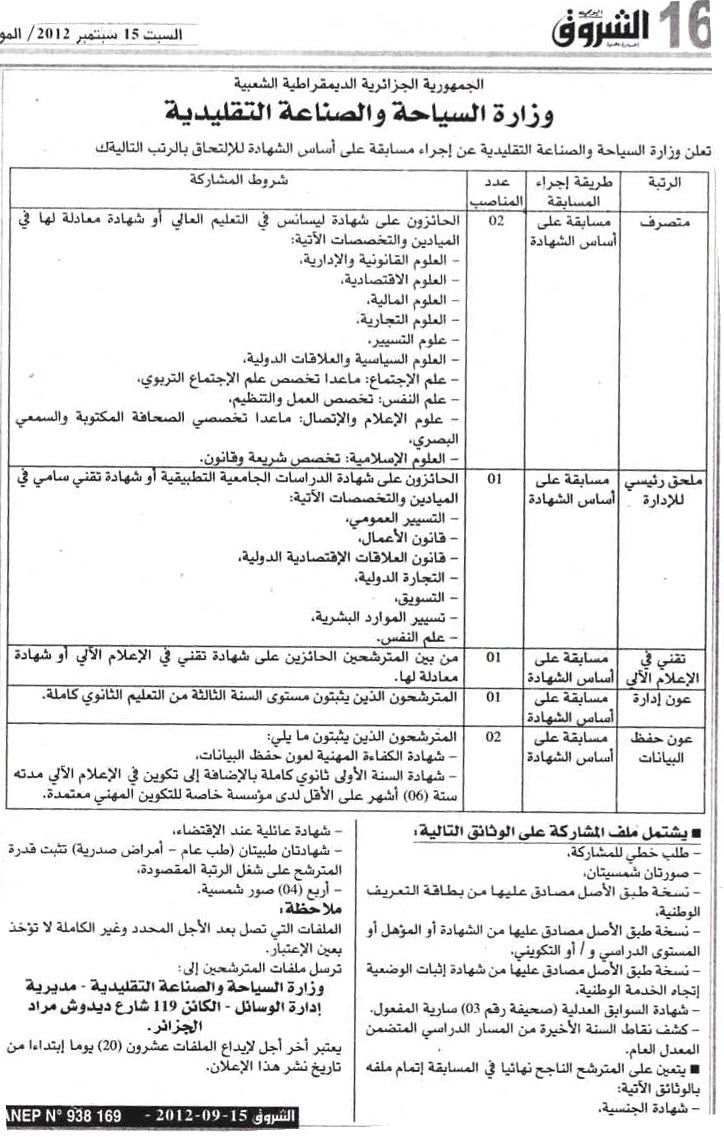 16
الشروق
اليومي
إخبارية وطنية
السبت 15 سبتمبر 2012/ المو
الجمهورية الجزائرية الديمقراطية الشعبية
وزارة السياحة والصناعة التقليدية
تعلن وزارة السياحة والصناعة التقليدية عن إجراء مسابقة على أساس الشهادة للإلتحاق بالرتب التالية:
الرتبة
طريقة إجراء
المسابقة
عدد
المناصب
شروط المشاركة
متصرف
مسابقة على
أساس الشهادة
02
الحائزون على شهادة ليسانس في التعليم العالي أو شهادة معادلة لها في
الميادين والتخصصات الآتية:
– العلوم القانونية والإدارية،
– العلوم الاقتصادية،
– العلوم المالية،
– العلوم التجارية،
– علوم التسيير،
– العلوم السياسية والعلاقات الدولية،
– علم الإجتماع: ماعدا تخصص علم الإجتماع التربوي،
– علم النفس: تخصص العمل والتنظيم،
– علوم الإعلام والإتصال: ماعدا تخصصي الصحافة المكتوبة والسمعي
البصري،
– العلوم الإسلامية: تخصص شريعة وقانون.
ملحق رئيسي
للإدارة
مسابقة على
أساس الشهادة
01
الحائزون على شهادة الدراسات الجامعية التطبيقية أو شهادة تقني سامي في
الميادين والتخصصات الآتية:
– التسيير العمومي،
– قانون الأعمال،
– قانون العلاقات الإقتصادية الدولية،
– التجارة الدولية،
– التسويق،
– تسيير الموارد البشرية،
– علم النفس.
تقني في
الإعلام الآلي
مسابقة على
أساس الشهادة
01
من بين المترشحين الحائزين على شهادة تقني في الإعلام الآلي أو شهادة
معادلة لها.
عون إدارة
مسابقة على
أساس الشهادة
01
المترشحون الذين يثبتون مستوى السنة الثالثة من التعليم الثانوي كاملة.
عون حفظ
البيانات
مسابقة على
أساس الشهادة
02
المترشحون الذين يثبتون ما يلي:
– شهادة الكفاءة المهنية لعون حفظ البيانات،
– شهادة السنة الأولى ثانوي كاملة بالإضافة إلى تكوين في الإعلام الآلي مدته
ستة (06) أشهر على الأقل لدى مؤسسة خاصة للتكوين المهني معتمدة.
■ يشتمل ملف المشاركة على الوثائق التالية:
– طلب خطي للمشاركة،
– صورتان شمسيتان،
– نسخة طبق الأصل مصادق عليها من بطاقة التعريف
الوطنية،
– نسخة طبق الأصل مصادق عليها من الشهادة أو المؤهل أو
المستوى الدراسي و / أو التكويني،
– نسخة طبق الأصل مصادق عليها من شهادة إثبات الوضعية
إتجاه الخدمة الوطنية.
– شهادة السوابق العدلية (صحيفة رقم 03) سارية المفعول.
– كشف نقاط السنة الأخيرة من المسار الدراسي المتضمن
المعدل العام.
■ يتعين على المترشح الناجح نهائيا في المسابقة إتمام ملفه
بالوثائق الآتية:
– شهادة الجنسية،
– شهادة عائلية عند الإقتضاء،
– شهادتان طبيتان (طب عام – أمراض صدرية) تثبت قدرة
المترشح على شغل الرتبة المقصودة،
– أربع (04) صور شمسية.
ملاحظة:
الملفات التي تصل بعد الأجل المحدد وغير الكاملة لا تؤخذ
بعين الإعتبار.
ترسل ملفات المترشحين إلى:
وزارة السياحة والصناعة التقليدية - مديرية
إدارة الوسائل - الكائن 119 شارع ديدوش مراد
الجزائر.
يعتبر أخر أجل لإيداع الملفات عشرون (20) يوما إبتداءا من
تاريخ نشر هذا الإعلان.
الشروق 15-09-2012 - ANEP N° 938 169